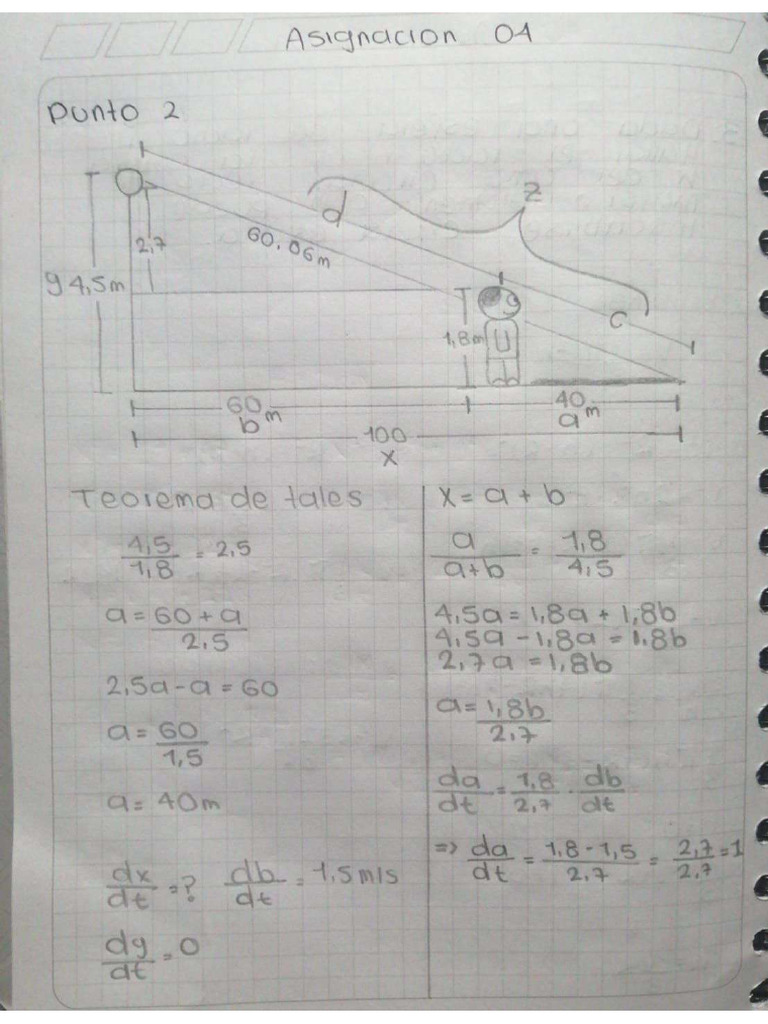 Asignacion 04
Punto 2
d
z
2,7
60.06m
y 4,5m
1,8m
c
60 m
b
40 m
a
100
x
Teorema de tales
4,5/1,8 = 2,5
a = 60 + a / 2,5
2,5a - a = 60
a = 60/1,5
a = 40m
dx/dt = ? db/dt = 1,5 m/s
dy/dt = 0
x = a + b
a/a+b = 1,8/4,5
4,5a = 1,8a + 1,8b
4,5a - 1,8a = 1.8b
2,7a = 1,8b
a = 1,8b/2,7
da/dt = 1,8/2,7 · db/dt
=> da/dt = 1,8 - 1,5/2,7 = 2,7/2,7 = 1